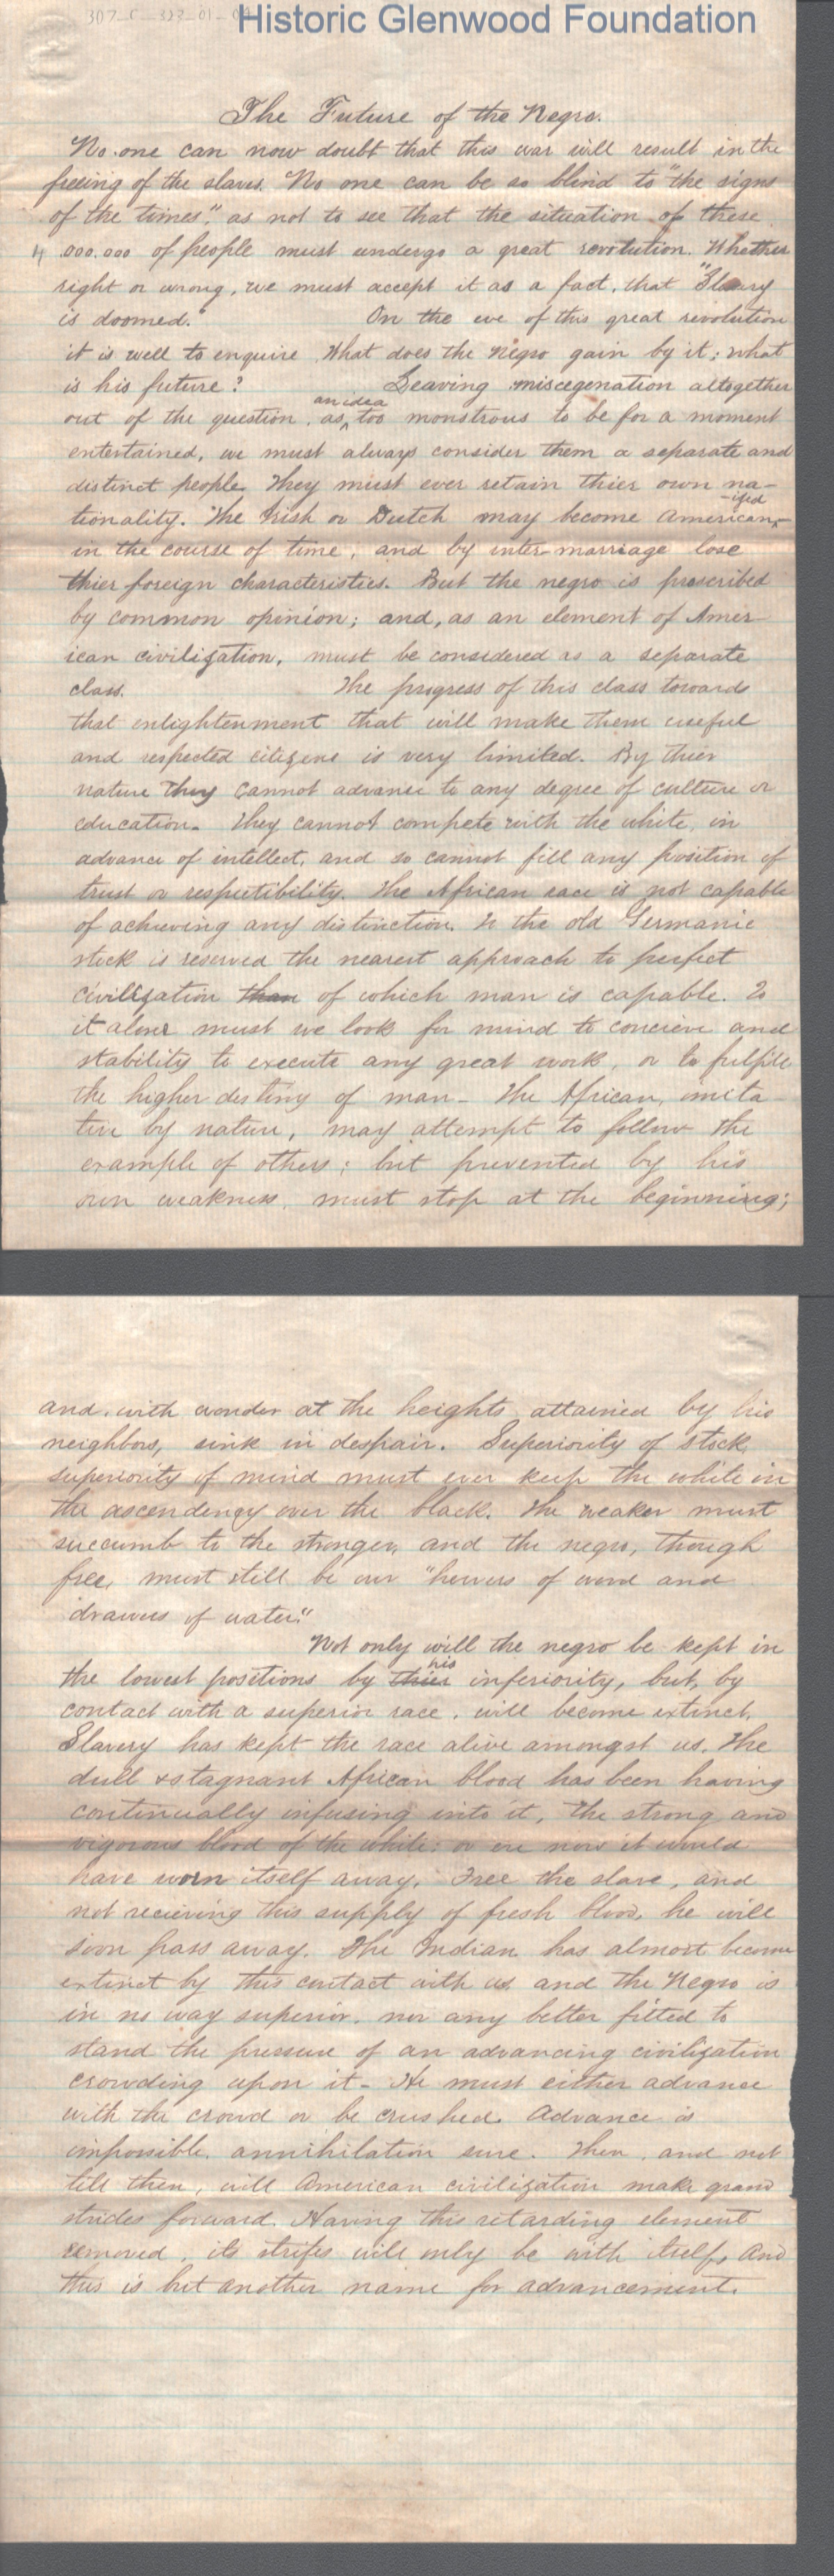 Historic Glenwood Foundation
The Future of the Negro.
No one can now doubt that this war will result in the
freeing of the slaves. No one can be so blind to "the signs
of the times", as not to see that the situation of these
4,000,000 of people must undergo a great revolution. Whether
right or wrong, we must accept it as a fact, that "Slavery
is doomed." On the eve of this great revolution
it is well to enquire What does the Negro gain by it; what
is his future? Leaving miscegenation altogether
an idea
out of the question, as too monstrous to be for a moment
entertained, we must always consider them a separate and
distinct people. They must ever retain thier own na-
-ized
tionality. The Irish or Dutch may become American
in the course of time, and by inter-marriage lose
thier foreign characteristics. But the negro is proscribed
by common opinion; and, as an element of Amer-
ican civilization, must be considered as a separate
class. The progress of this class towards
that enlightenment that will make them useful
and respected citizens is very limited. By thier
nature they cannot advance to any degree of culture or
education. They cannot compete with the white, in
advance of intellect, and so cannot fill any position of
trust or respectibility. The African race is not capable
of achieving any distinction. To the old Germanic
stock is reserved the nearest approach to perfect
civilization than of which man is capable. To
it alone must we look for mind to concieve and
stability to execute any great work, or to fulfill
the higher destiny of man- The African, imita-
tive by nature, may attempt to follow the
example of others; but prevented by his
own weakness, must stop at the beginning;
and, with wonder at the heights attained by his
neighbors, sink in despair. Superiority of stock,
superiority of mind must ever keep the white in
the ascendency over the black. The weaker must
succumb to the stronger, and the negro, though
free, must still be our "hewers of wood and
drawers of water."
Not only will the negro be kept in
his
the lowest positions by thier inferiority, but, by
contact with a superior race, will become extinct.
Slavery has kept the race alive amongst us. The
dull & stagnant African blood has been having
continually infusing into it, the strong and
vigorous blood of the white; or ere now it would
have worn itself away. Free the slave, and
not recieving this supply of fresh blood, he will
soon pass away. The Indian has almost become
extinct by this contact with us, and the Negro is
in no way superior, nor any better fitted to
stand the pressure of an advancing civilization
crowding upon it- He must either advance
with the crowd or be crushed. Advance is
impossible, annihilation sure. Then, and not
till then, will American civilization make grand
strides forward. Having this retarding element
removed, its strifes will only be with itself, and
this is but another name for advancement.